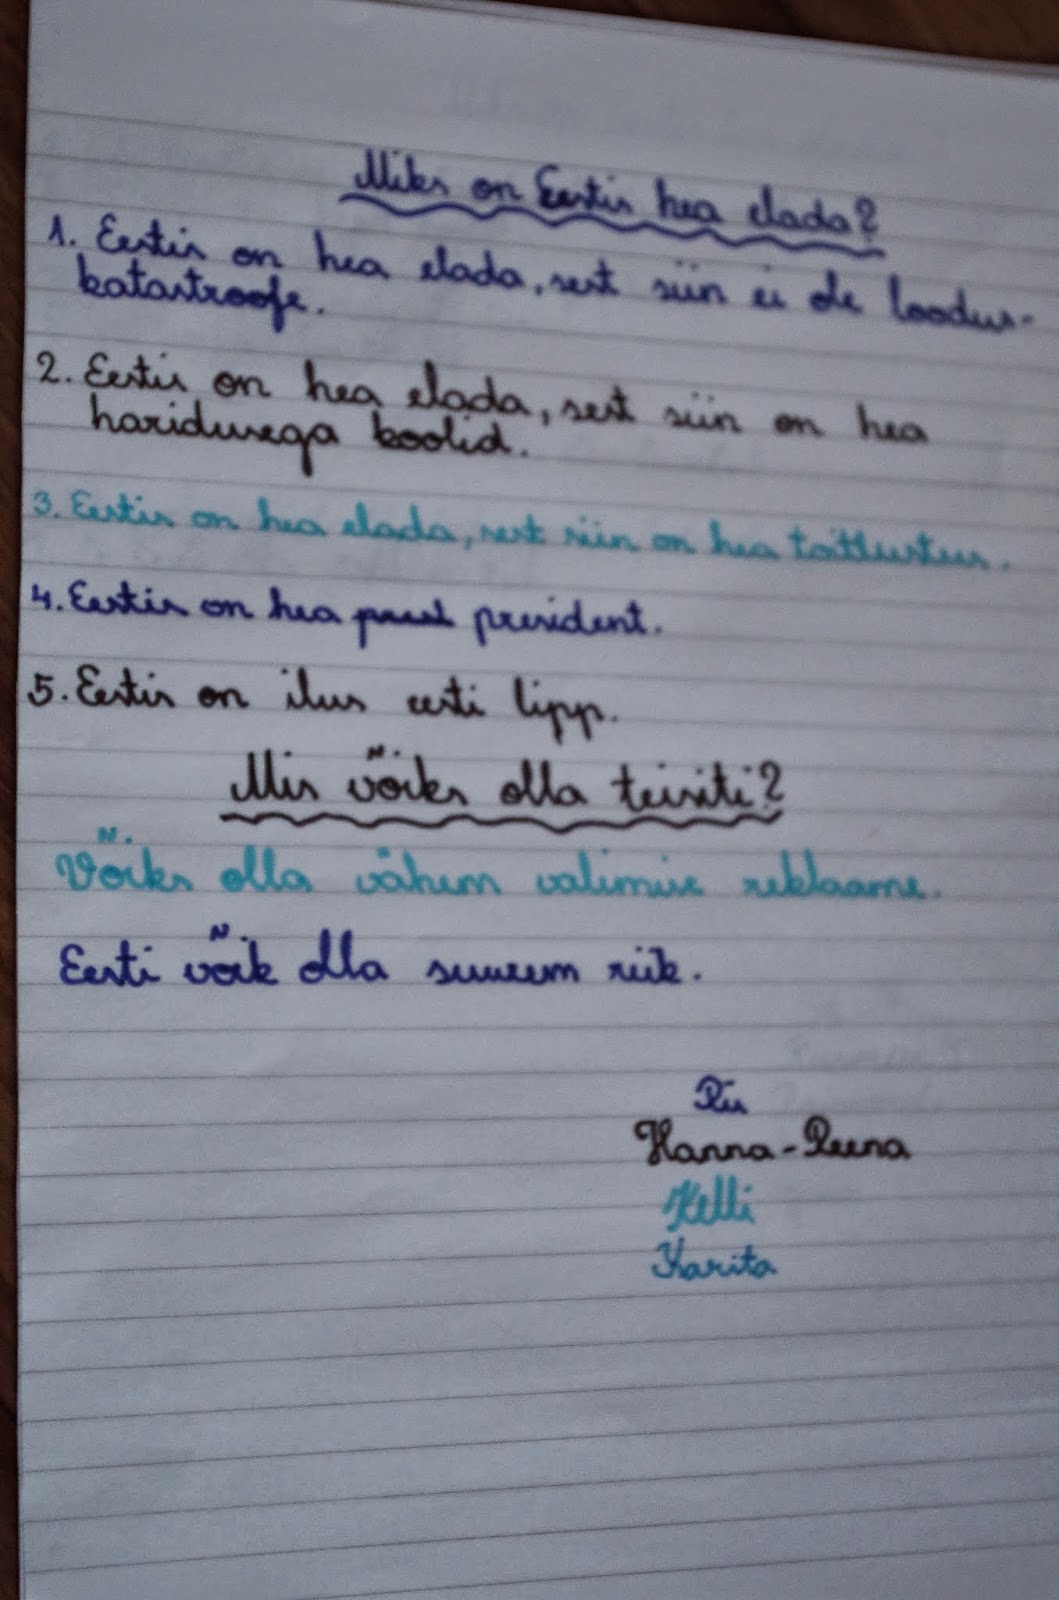 Miks on Eestis hea elada?
1. Eestis on hea elada, sest siin ei ole loodus-
katastroofe.
2. Eestis on hea elada, sest siin on hea
haridusega koolid.
3. Eestis on hea elada, sest siin on hea toitlustus.
4. Eestis on hea president.
5. Eestis on ilus eesti lipp.
Mis võiks olla teisiti?
Võiks olla vähem valimise reklaame.
Eesti võik olla suurem riik.
Hanna-Reena
Kelli
Karita